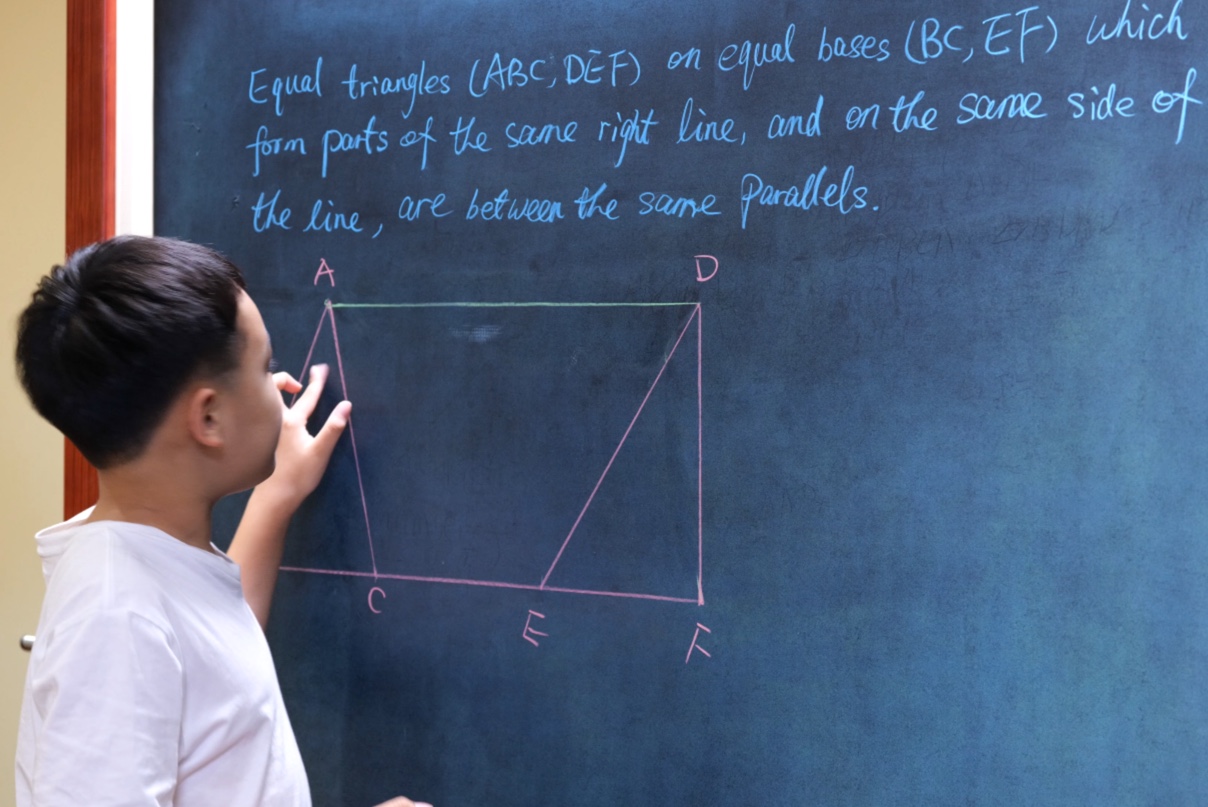 Equal triangles (ABC, DEF) on equal bases (BC, EF) which
form parts of the same right line, and on the same side of
the line, are between the same parallels.
A
D
C
E
F